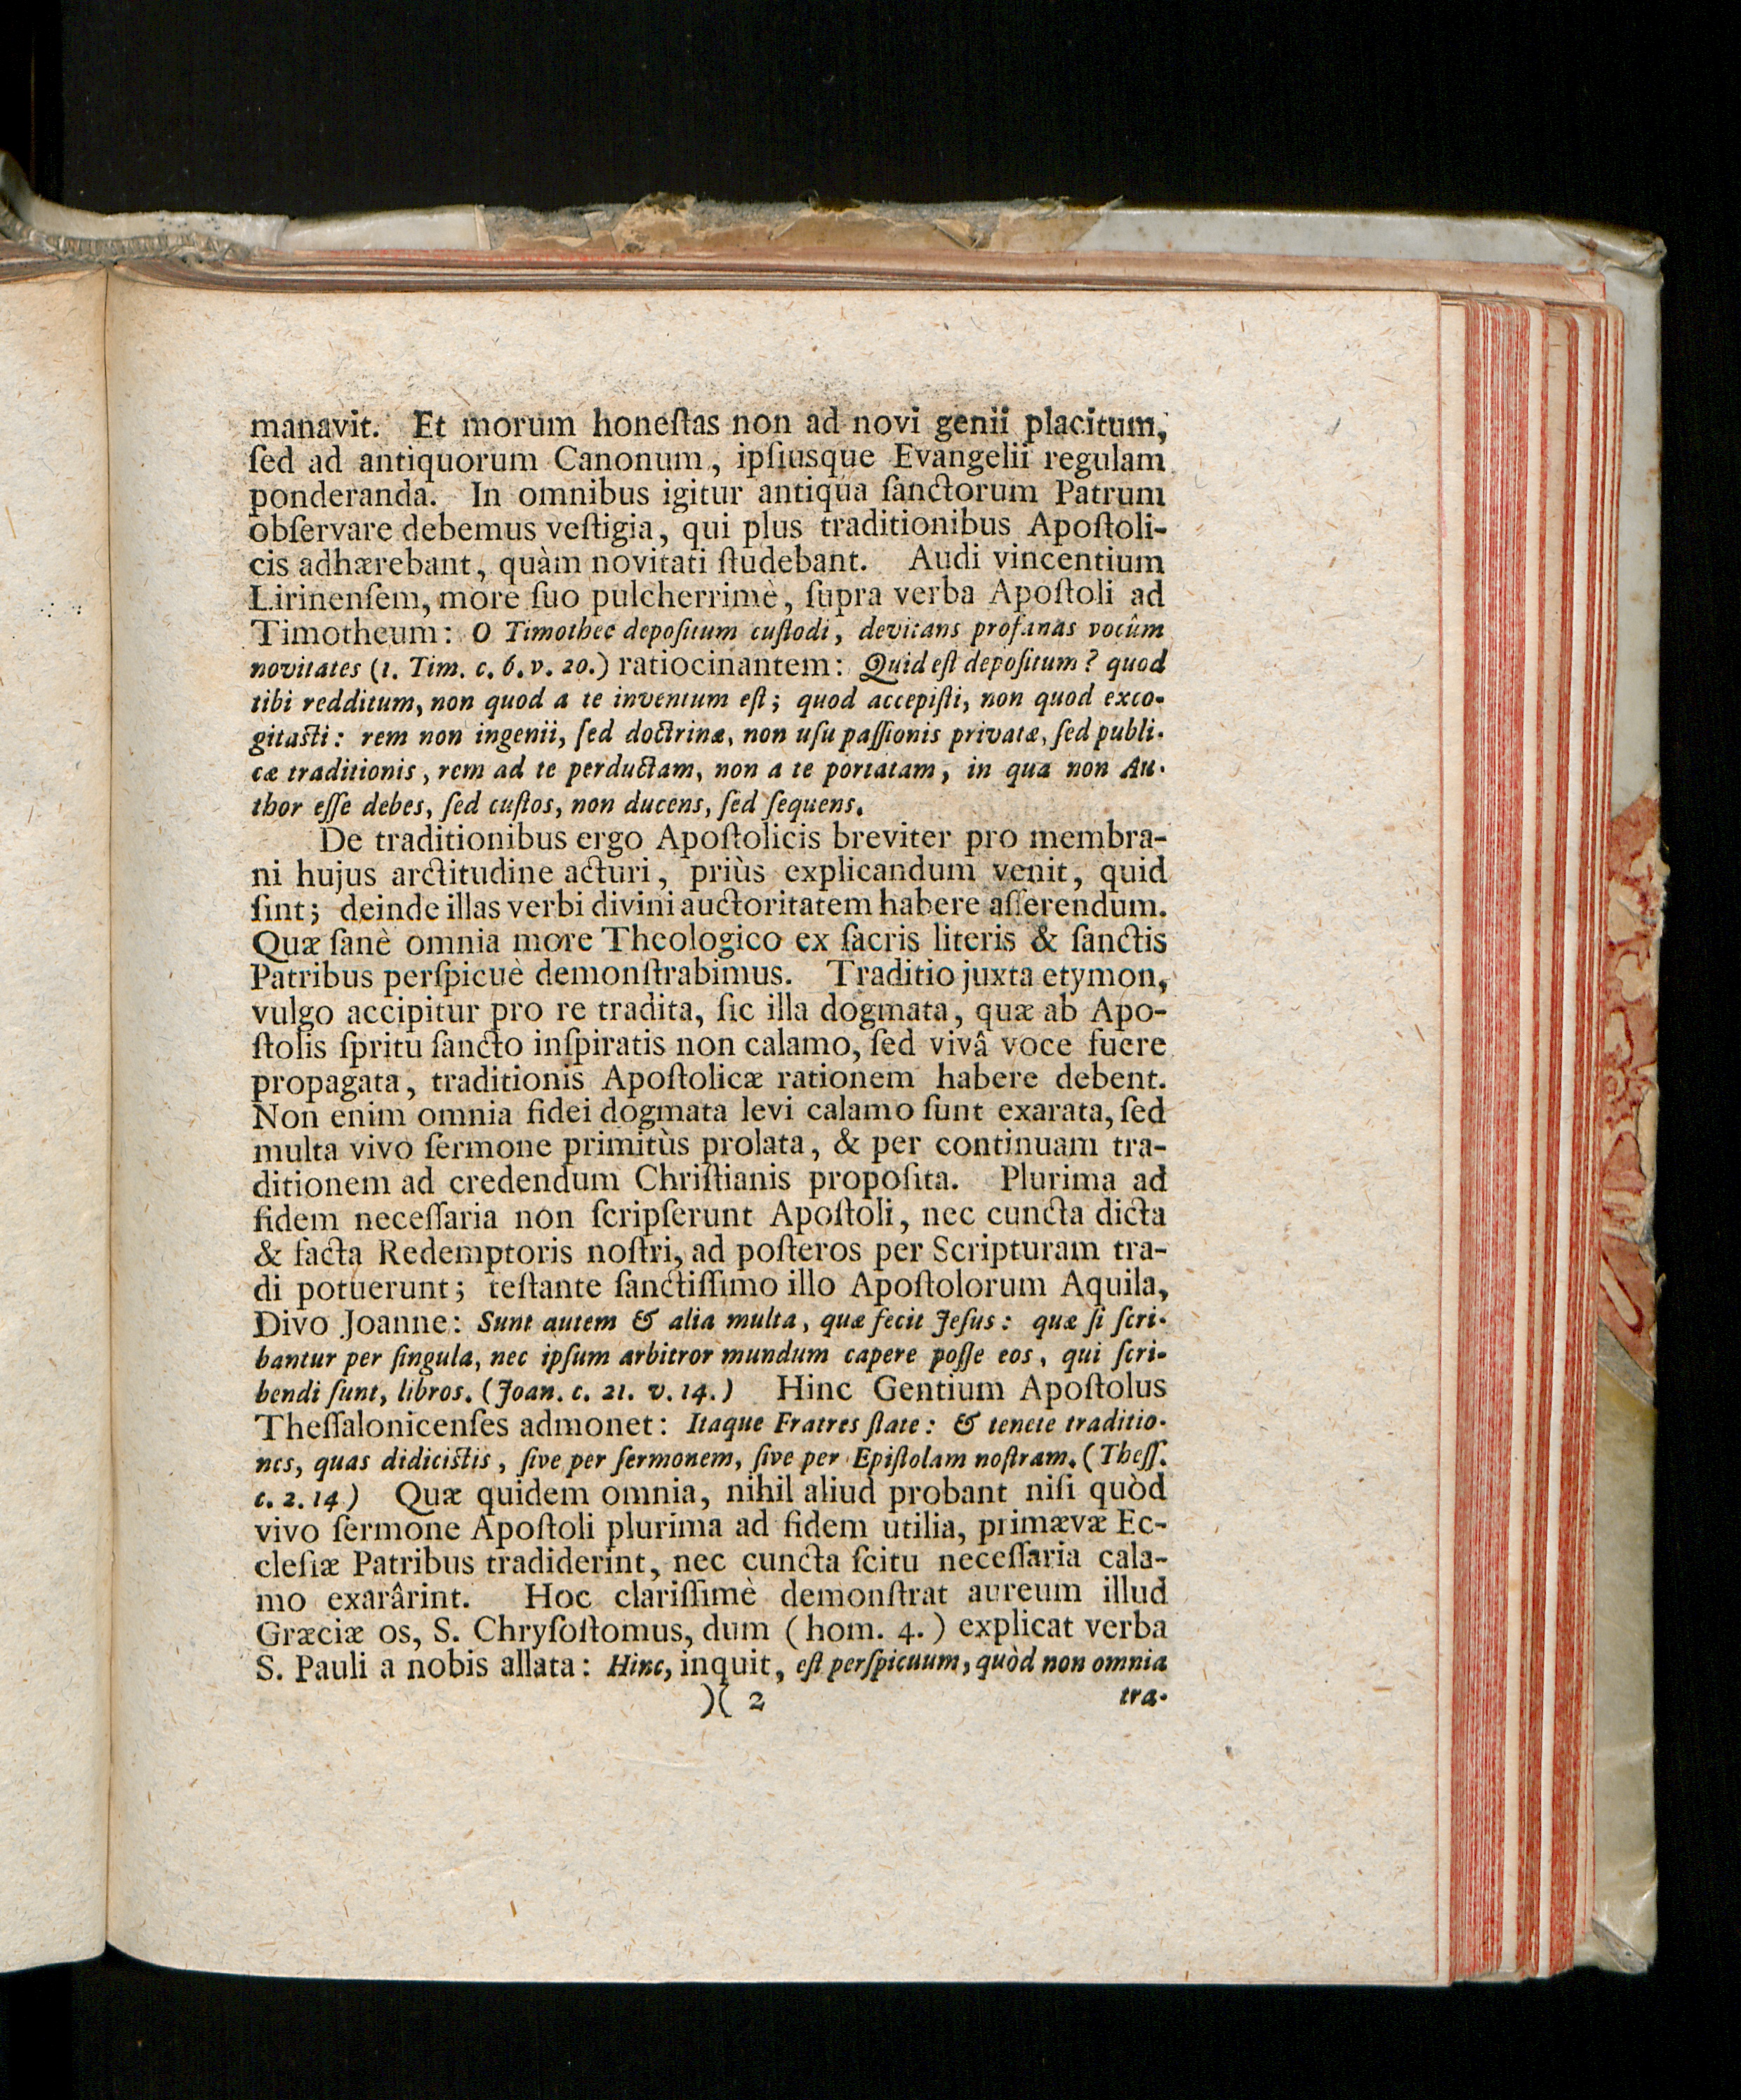 manavit. Et morum honeſtas non ad novi genii placitum,
ſed ad antiquorum Canonum, ipſiusque Evangelii regulam
ponderanda. In omnibus igitur antiqua ſanctorum Patrum
obſervare debemus veſtigia, qui plus traditionibus Apoſtoli-
cis adhærebant, quàm novitati ſtudebant. Audi vincentium
Lirinenſem, more ſuo pulcherrimè, ſupra verba Apoſtoli ad
Timotheum: O Timothee depoſitum cuſtodi, devitans profanas vocûm
novitates (1. Tim. c. 6. v. 20.) ratiocinantem: Quid eſt depoſitum? quod
tibi redditum, non quod a te inventum eſt; quod accepiſti, non quod exco-
gitaſti: rem non ingenii, ſed doctrinæ, non uſu paſſionis privatæ, ſed publi-
cæ traditionis, rem ad te perductam, non a te portatam, in qua non Au-
thor eſſe debes, ſed cuſtos, non ducens, ſed ſequens.
De traditionibus ergo Apoſtolicis breviter pro membra-
ni hujus arctitudine acturi, priùs explicandum venit, quid
ſint; deinde illas verbi divini auctoritatem habere aſſerendum.
Quæ ſanè omnia more Theologico ex ſacris literis & ſanctis
Patribus perſpicuè demonſtrabimus. Traditio juxta etymon,
vulgo accipitur pro re tradita, ſic illa dogmata, quæ ab Apo-
ſtolis ſpritu ſancto inſpiratis non calamo, ſed vivâ voce fuere
propagata, traditionis Apoſtolicæ rationem habere debent.
Non enim omnia fidei dogmata levi calamo ſunt exarata, ſed
multa vivo ſermone primitùs prolata, & per continuam tra-
ditionem ad credendum Chriſtianis propoſita. Plurima ad
fidem neceſſaria non ſcripſerunt Apoſtoli, nec cuncta dicta
& facta Redemptoris noſtri, ad poſteros per Scripturam tra-
di potuerunt; teſtante ſanctiſſimo illo Apoſtolorum Aquila,
Divo Joanne: Sunt autem & alia multa, quæ fecit Jeſus: quæ ſi ſcri-
bantur per ſingula, nec ipſum arbitror mundum capere poſſe eos, qui ſcri-
bendi ſunt, libros. (Joan. c. 21. v. 14.) Hinc Gentium Apoſtolus
Theſſalonicenſes admonet: Itaque Fratres ſtate: & tenete traditio-
nes, quas didiciſtis, ſive per ſermonem, ſive per Epiſtolam noſtram. (Theſſ.
c. 2. 14) Quæ quidem omnia, nihil aliud probant niſi quòd
vivo ſermone Apoſtoli plurima ad fidem utilia, primævæ Ec-
cleſiæ Patribus tradiderint, nec cuncta ſcitu neceſſaria cala-
mo exarârint. Hoc clariſſimè demonſtrat aureum illud
Græciæ os, S. Chryſoſtomus, dum (hom. 4.) explicat verba
S. Pauli a nobis allata: Hinc, inquit, eſt perſpicuum, quòd non omnia
)( 2 tra-